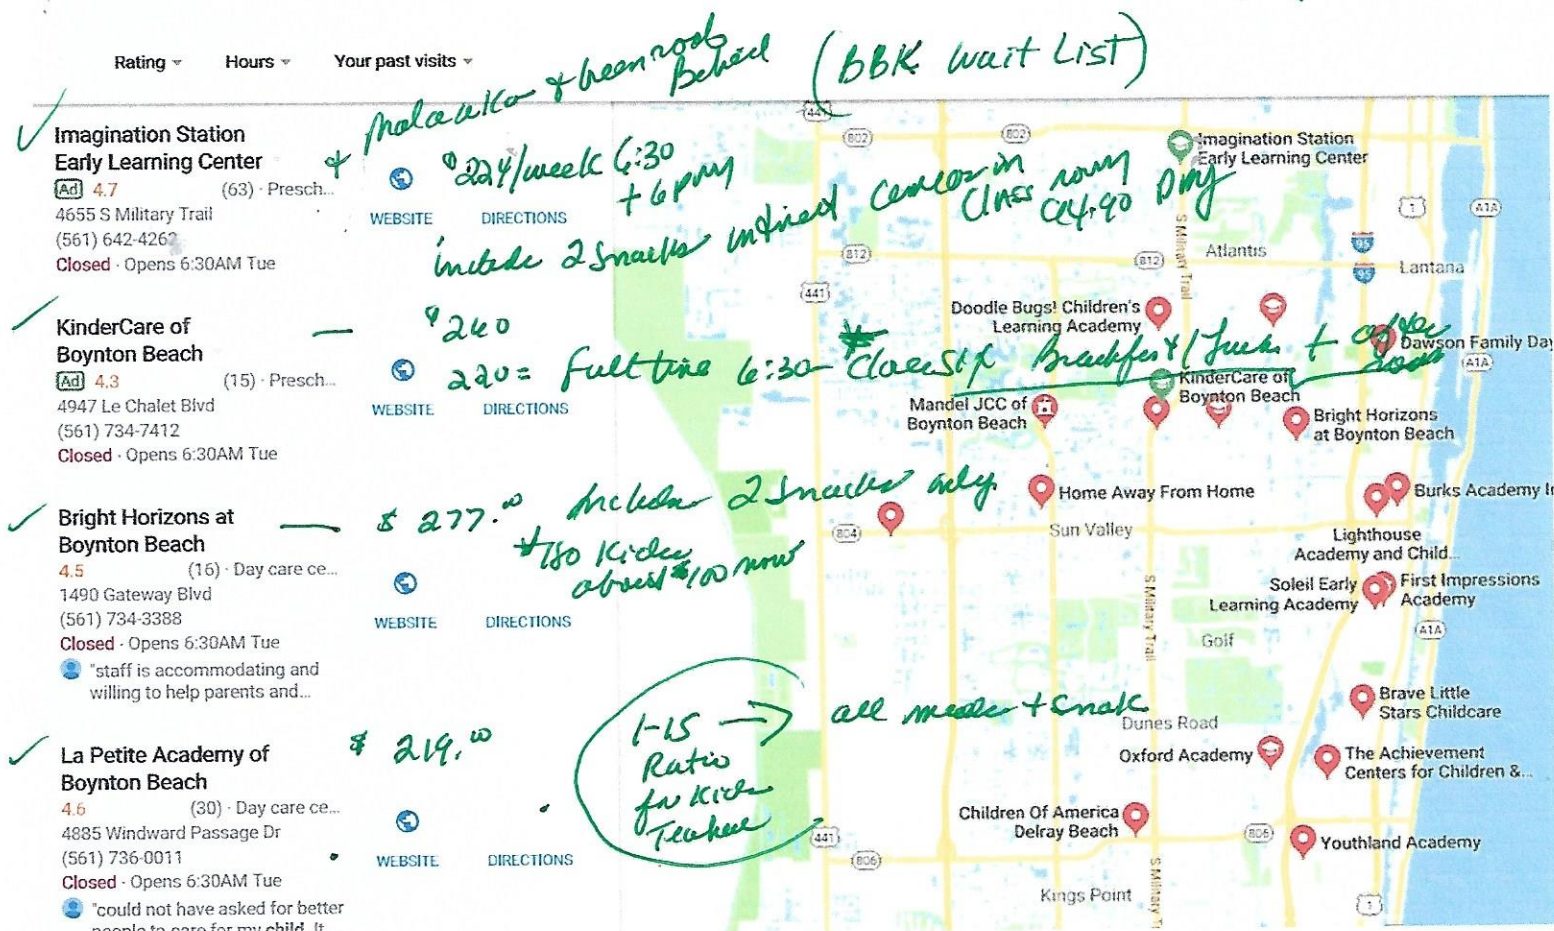 (BBK Wait List)
Behind
Rating
Hours
Your past visits
Imagination Station
Early Learning Center
Ad 4.7 (63) · Presch...
4655 S Military Trail
(561) 642-4262
Closed · Opens 6:30AM Tue
WEBSITE DIRECTIONS
$224/week 6:30
+ 6 pm
include 2 snacks
class room
KinderCare of
Boynton Beach
Ad 4.3 (15) · Presch...
4947 Le Chalet Blvd
(561) 734-7412
Closed · Opens 6:30AM Tue
WEBSITE DIRECTIONS
$260
220 = full time 6:30-
Bright Horizons at
Boynton Beach
4.5 (16) · Day care ce...
1490 Gateway Blvd
(561) 734-3388
Closed · Opens 6:30AM Tue
"staff is accommodating and
willing to help parents and...
WEBSITE DIRECTIONS
$ 277.00 Includes 2 snacks only
180 Kids
about 100 now
La Petite Academy of
Boynton Beach
4.6 (30) · Day care ce...
4885 Windward Passage Dr
(561) 736-0011
Closed · Opens 6:30AM Tue
"could not have asked for better
people to care for my child. It
WEBSITE DIRECTIONS
$ 219.00
1-15
Ratio
for Kids
Teacher
all meals + snak
441
802
802
Imagination Station
Early Learning Center
S Military Trail
1
A1A
95
812
812
Atlantis
95
Lantana
441
Doodle Bugs! Children's
Learning Academy
Dawson Family Day
A1A
KinderCare of
Boynton Beach
Mandel JCC of
Boynton Beach
Bright Horizons
at Boynton Beach
Home Away From Home
Burks Academy In
804
Sun Valley
Lighthouse
Academy and Child...
S Military Trail
Soleil Early
Learning Academy
First Impressions
Academy
A1A
Golf
Brave Little
Stars Childcare
Dunes Road
Oxford Academy
The Achievement
Centers for Children &...
Children Of America
Delray Beach
441
806
806
Youthland Academy
S Military T
Kings Point
1